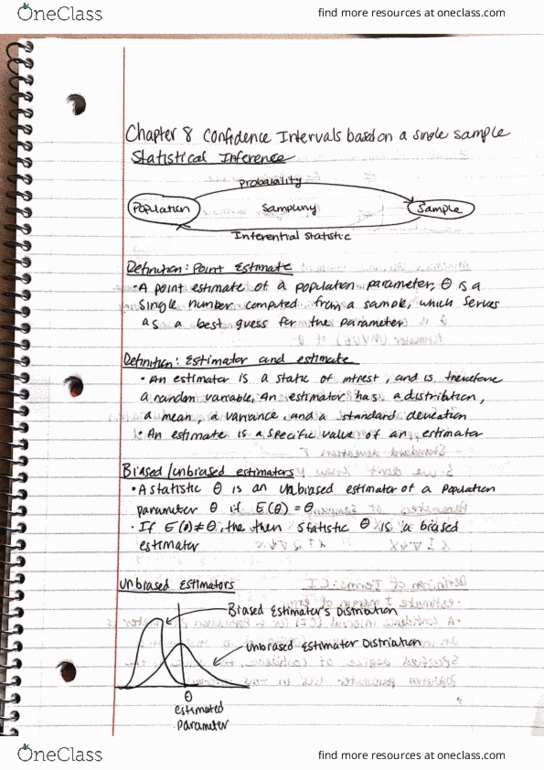 OneClass
find more resources at oneclass.com
Chapter 8 Confidence Intervals based on a single sample
Statistical Inference
Probability
Population
Sampling
Sample
Inferential Statistic
Definition: Point Estimate
• A point estimate of a population parameter, θ is a
single number computed from a sample, which serves
as a best guess for the parameter
Definition: Estimator and estimate
• An estimator is a static of intrest, and is therefore
a random variable, An estimator has a distribution,
a mean, a variance, and a standard deviation
• An estimate is a specific value of an estimator
Biased/unbiased estimators
• A statistic θ is an unbiased estimator of a population
parameter θ if E(θ) = θ
• If E(θ) ≠ θ, the then statistic θ is a biased
estimator
Unbiased Estimators
Biased Estimator's Distriation
unbiased Estimator Distriation
θ
estimated
parameter
OneClass
find more resources at oneclass.com